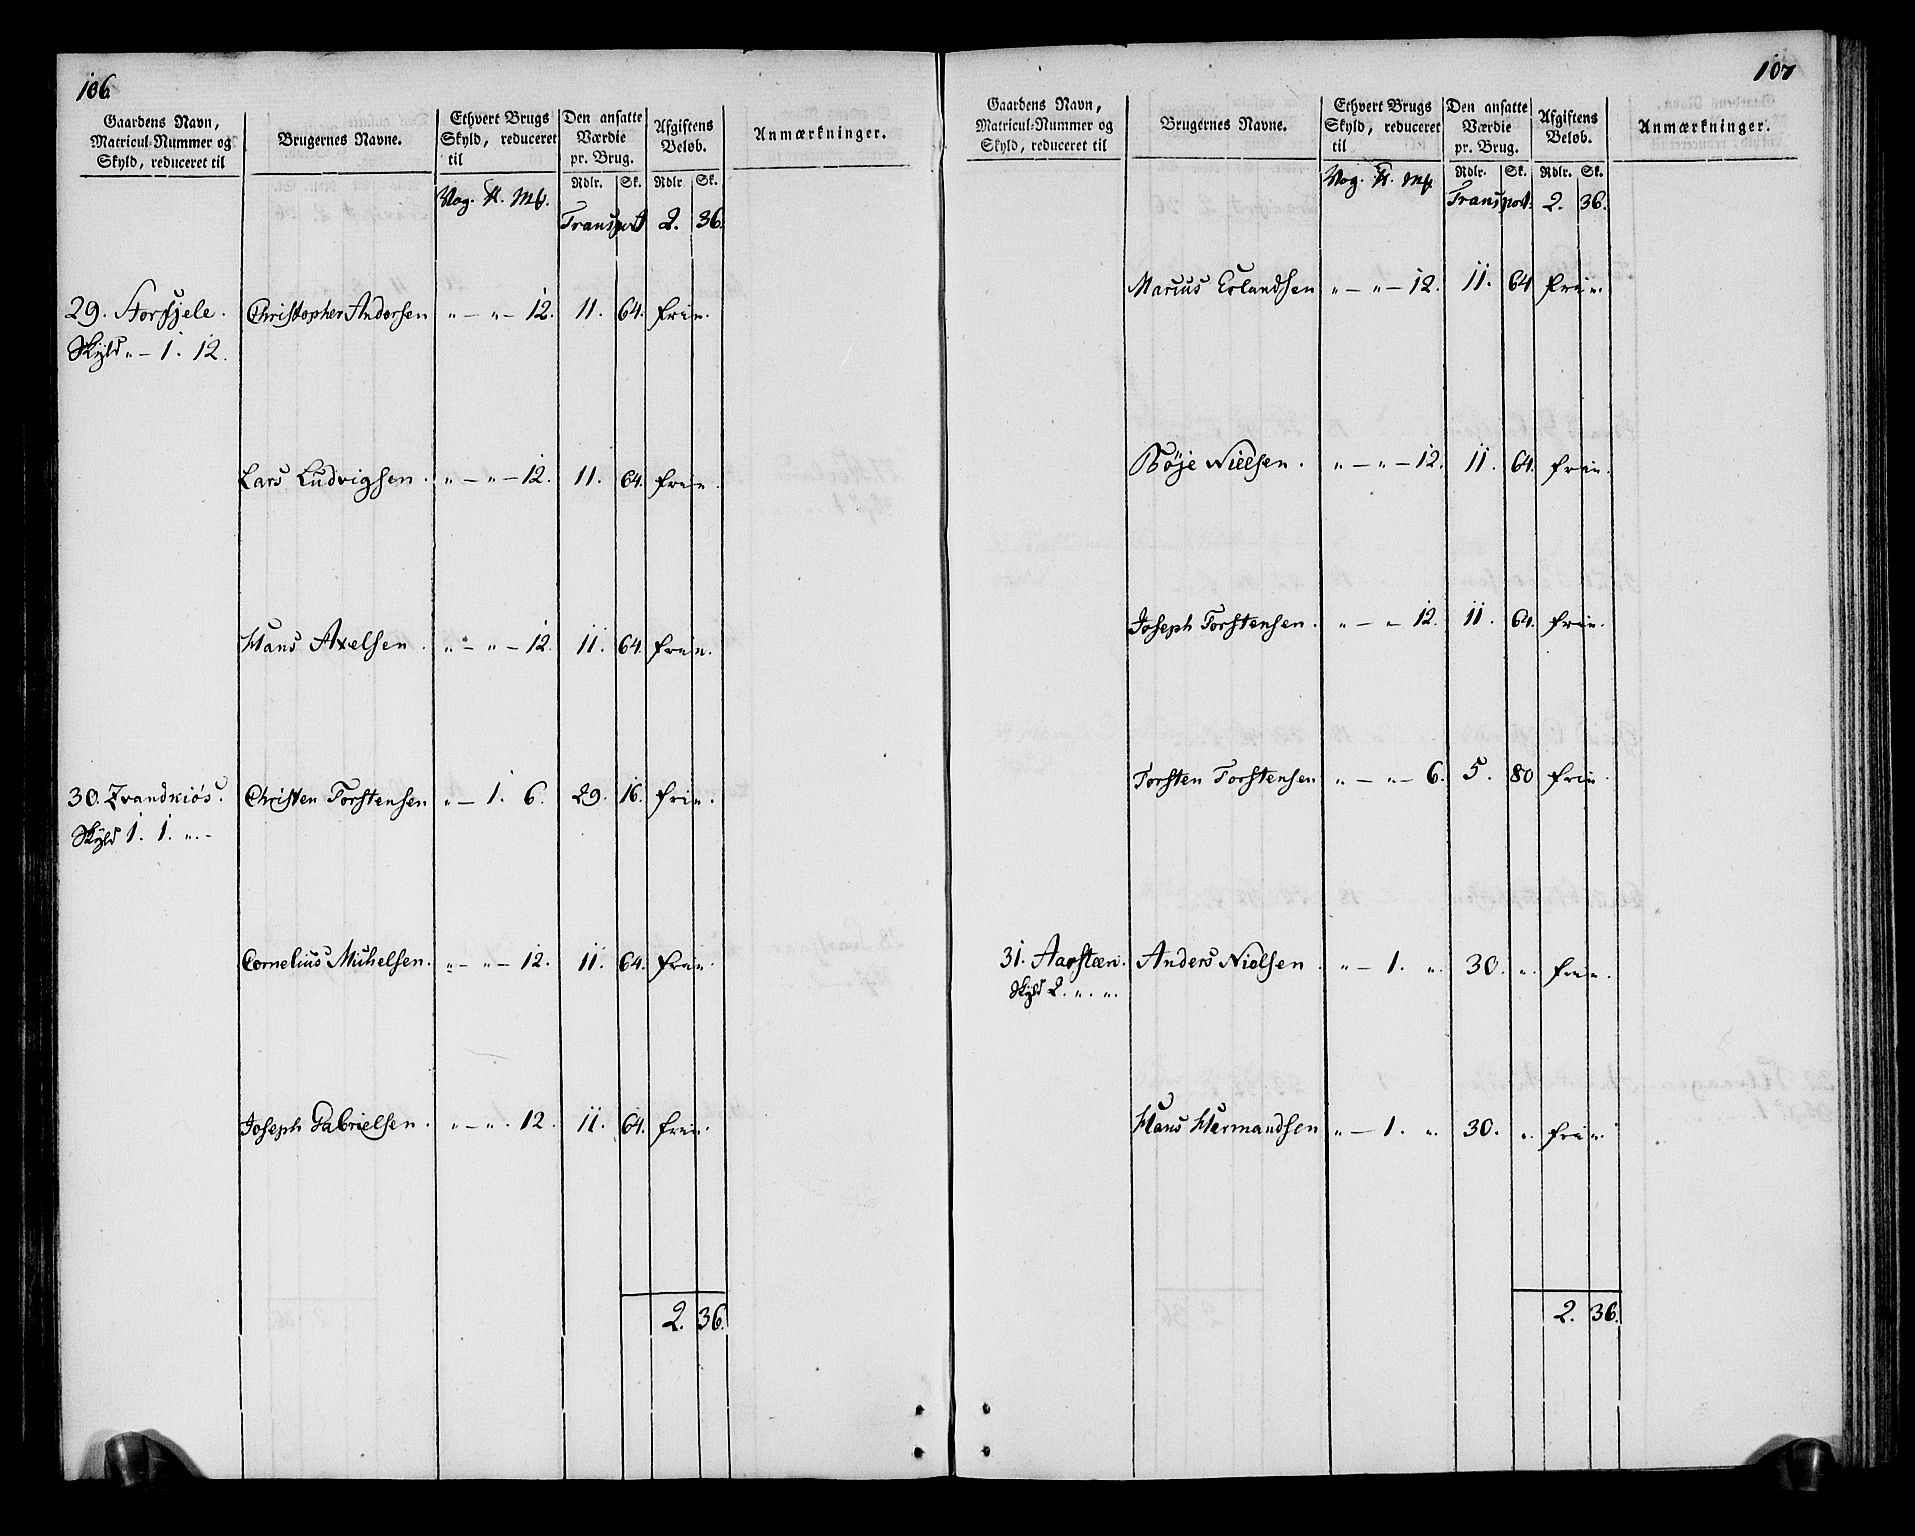 106.
Gaardens Navn, Matricul-Nummer og Skyld, reduceret til
Brugernes Navne.
Ethvert Brugs Skyld, reduceret til
Den ansatte Værdie pr. Brug.
Afgiftens Beløb.
Anmærkninger.
Rdlr. Sk. Rdlr Sk.
Vog. Mk.
Transport 2. 36.
29. Storfjele. Christopher Andersen „ — „ — 12. 11. 64. frie.
Skyld „ — 1. 12.
Lars Ludvigsen. „ — „ — 12. 11. 64. frie.
Hans Axelsen. „ — „ — 12. 11. 64. frie.
30. Christen Torstensen „ — 1. 6. 29. 16. frie.
Skyld 1. 1. „. -
Cornelius Michelsen. „ — „ — 12. 11. 64. frie.
Joseph Gabrielsen. „ — „. 12. 11. 64. frie.
2. 36.
107
Gaardens Navn, Matricul-Nummer og Skyld, reduceret til
Brugernes Navne.
Ethvert Brugs Skyld, reduceret til
Den ansatte Værdie pr. Brug.
Afgiftens Beløb.
Anmærkninger.
Rdlr. Sk. Rdlr. Sk.
Vog. Mk
Transport. 2. 36.
Marcus Erlandsen „ — „ — 12. 11. 64 frie.
Bøje Nielsen. „ — „ — 12. 11. 64. frie.
Joseph Torstensen. „ — „ — 12. 11. 64. frie.
Torsten Torstensen „ — „ — 6. 5. 80 frie.
31. Aarsteen. Anders Nielsen. „ — 1. „. 30. „. frie.
Skyld 2. „. „.
Hans Hermandsen „ — 1. „. 30. „. frie.
2. 36.